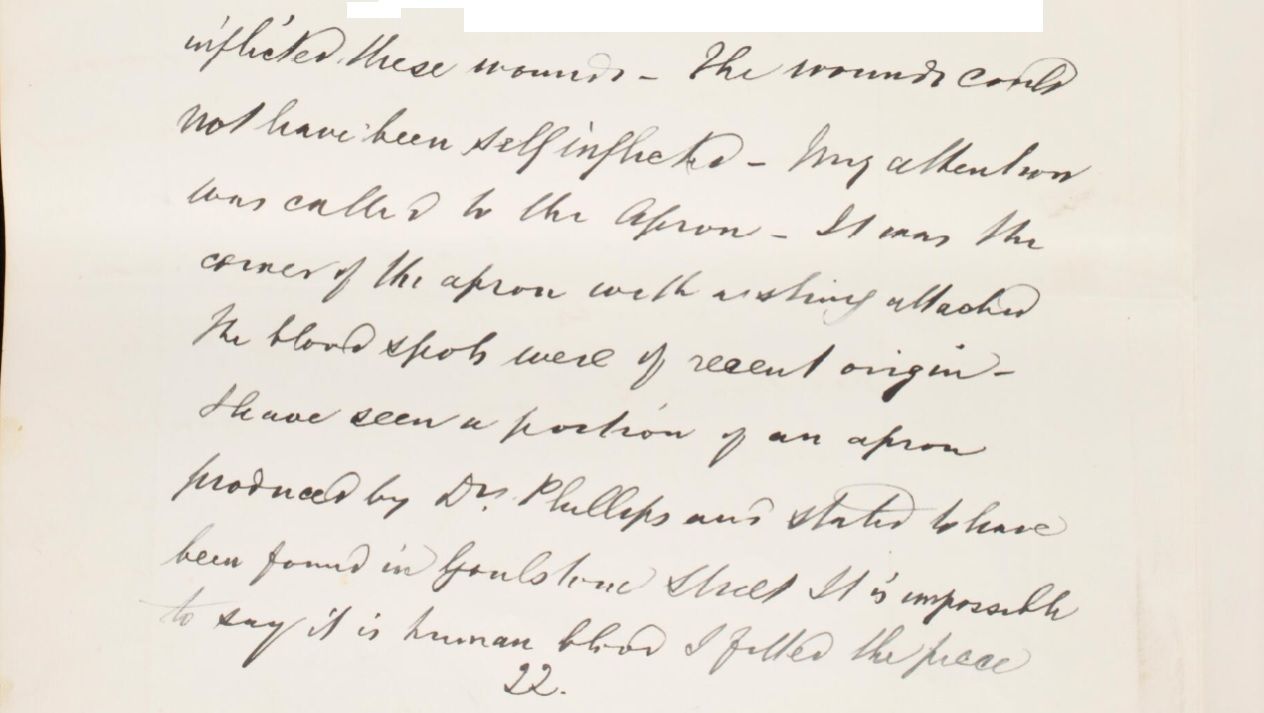 inflicted these wounds – The wounds could
not have been self inflicted – My attention
was called to the Apron – It was the
corner of the apron with a string attached
The blood spots were of recent origin –
I have seen a portion of an apron
produced by Dr. Phillips and stated to have
been found in Goulstone Street It is impossible
to say it is human blood I fitted the piece
22.